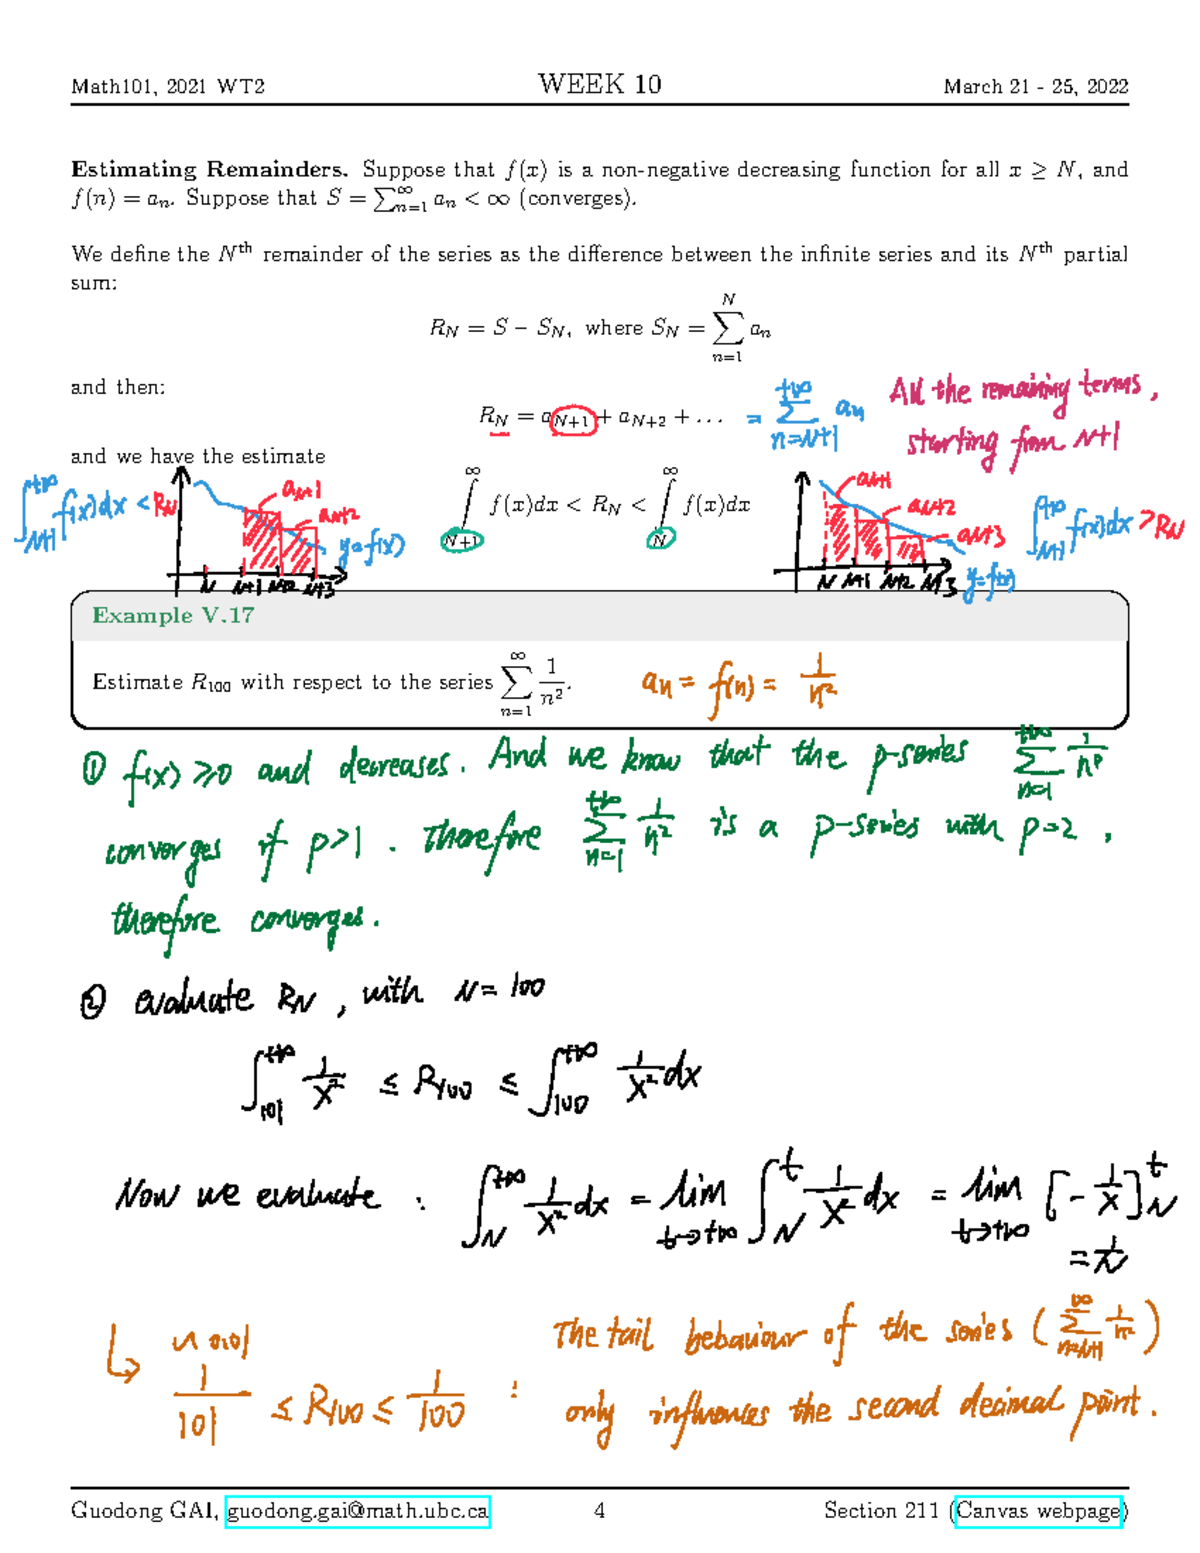 Math101, 2021 WT2 WEEK 10 March 21 - 25, 2022
Estimating Remainders. Suppose that f(x) is a non-negative decreasing function for all x ≥ N, and
f(n) = aₙ. Suppose that S = ∑_{n=1}^{∞} aₙ < ∞ (converges).
We define the Nᵗʰ remainder of the series as the difference between the infinite series and its Nᵗʰ partial
sum:
R_N = S − S_N, where S_N = ∑_{n=1}^{N} aₙ
and then:
R_N = a_{N+1} + a_{N+2} + ... = ∑_{n=N+1}^{+∞} aₙ
All the remaining terms,
starting from N+1
and we have the estimate
∫_{N+1}^{+∞} f(x)dx < R_N
a_{N+1}
a_{N+2}
y=f(x)
N N+1 N+2 N+3
∫_{N+1}^{∞} f(x)dx < R_N < ∫_{N}^{∞} f(x)dx
a_{N+1}
a_{N+2}
a_{N+3}
N N+1 N+2 N+3
y=f(x)
∫_{N+1}^{+∞} f(x)dx > R_N
Example V.17
Estimate R₁₀₀ with respect to the series ∑_{n=1}^{∞} 1/n². aₙ = f(n) = 1/n²
① f(x) ≥0 and decreases. And we know that the p-series ∑_{n=1}^{+∞} 1/n^p
converges if p>1. Therefore ∑_{n=1}^{+∞} 1/n² is a p-series with p=2,
therefore converges.
② evaluate R_N, with N=100
∫_{101}^{+∞} 1/x² ≤ R₁₀₀ ≤ ∫_{100}^{+∞} 1/x² dx
Now we evaluate : ∫_{N}^{+∞} 1/x² dx = lim_{t→+∞} ∫_{N}^{t} 1/x² dx = lim_{t→+∞} [-1/x]_{N}^{t}
= 1/N
↳ 1/101 ≤ R₁₀₀ ≤ 1/100 :
The tail behaviour of the series (∑_{n=N+1}^{∞} 1/n²)
only influences the second decimal point.
Guodong GAI, guodong.gai@math.ubc.ca 4 Section 211 (Canvas webpage)